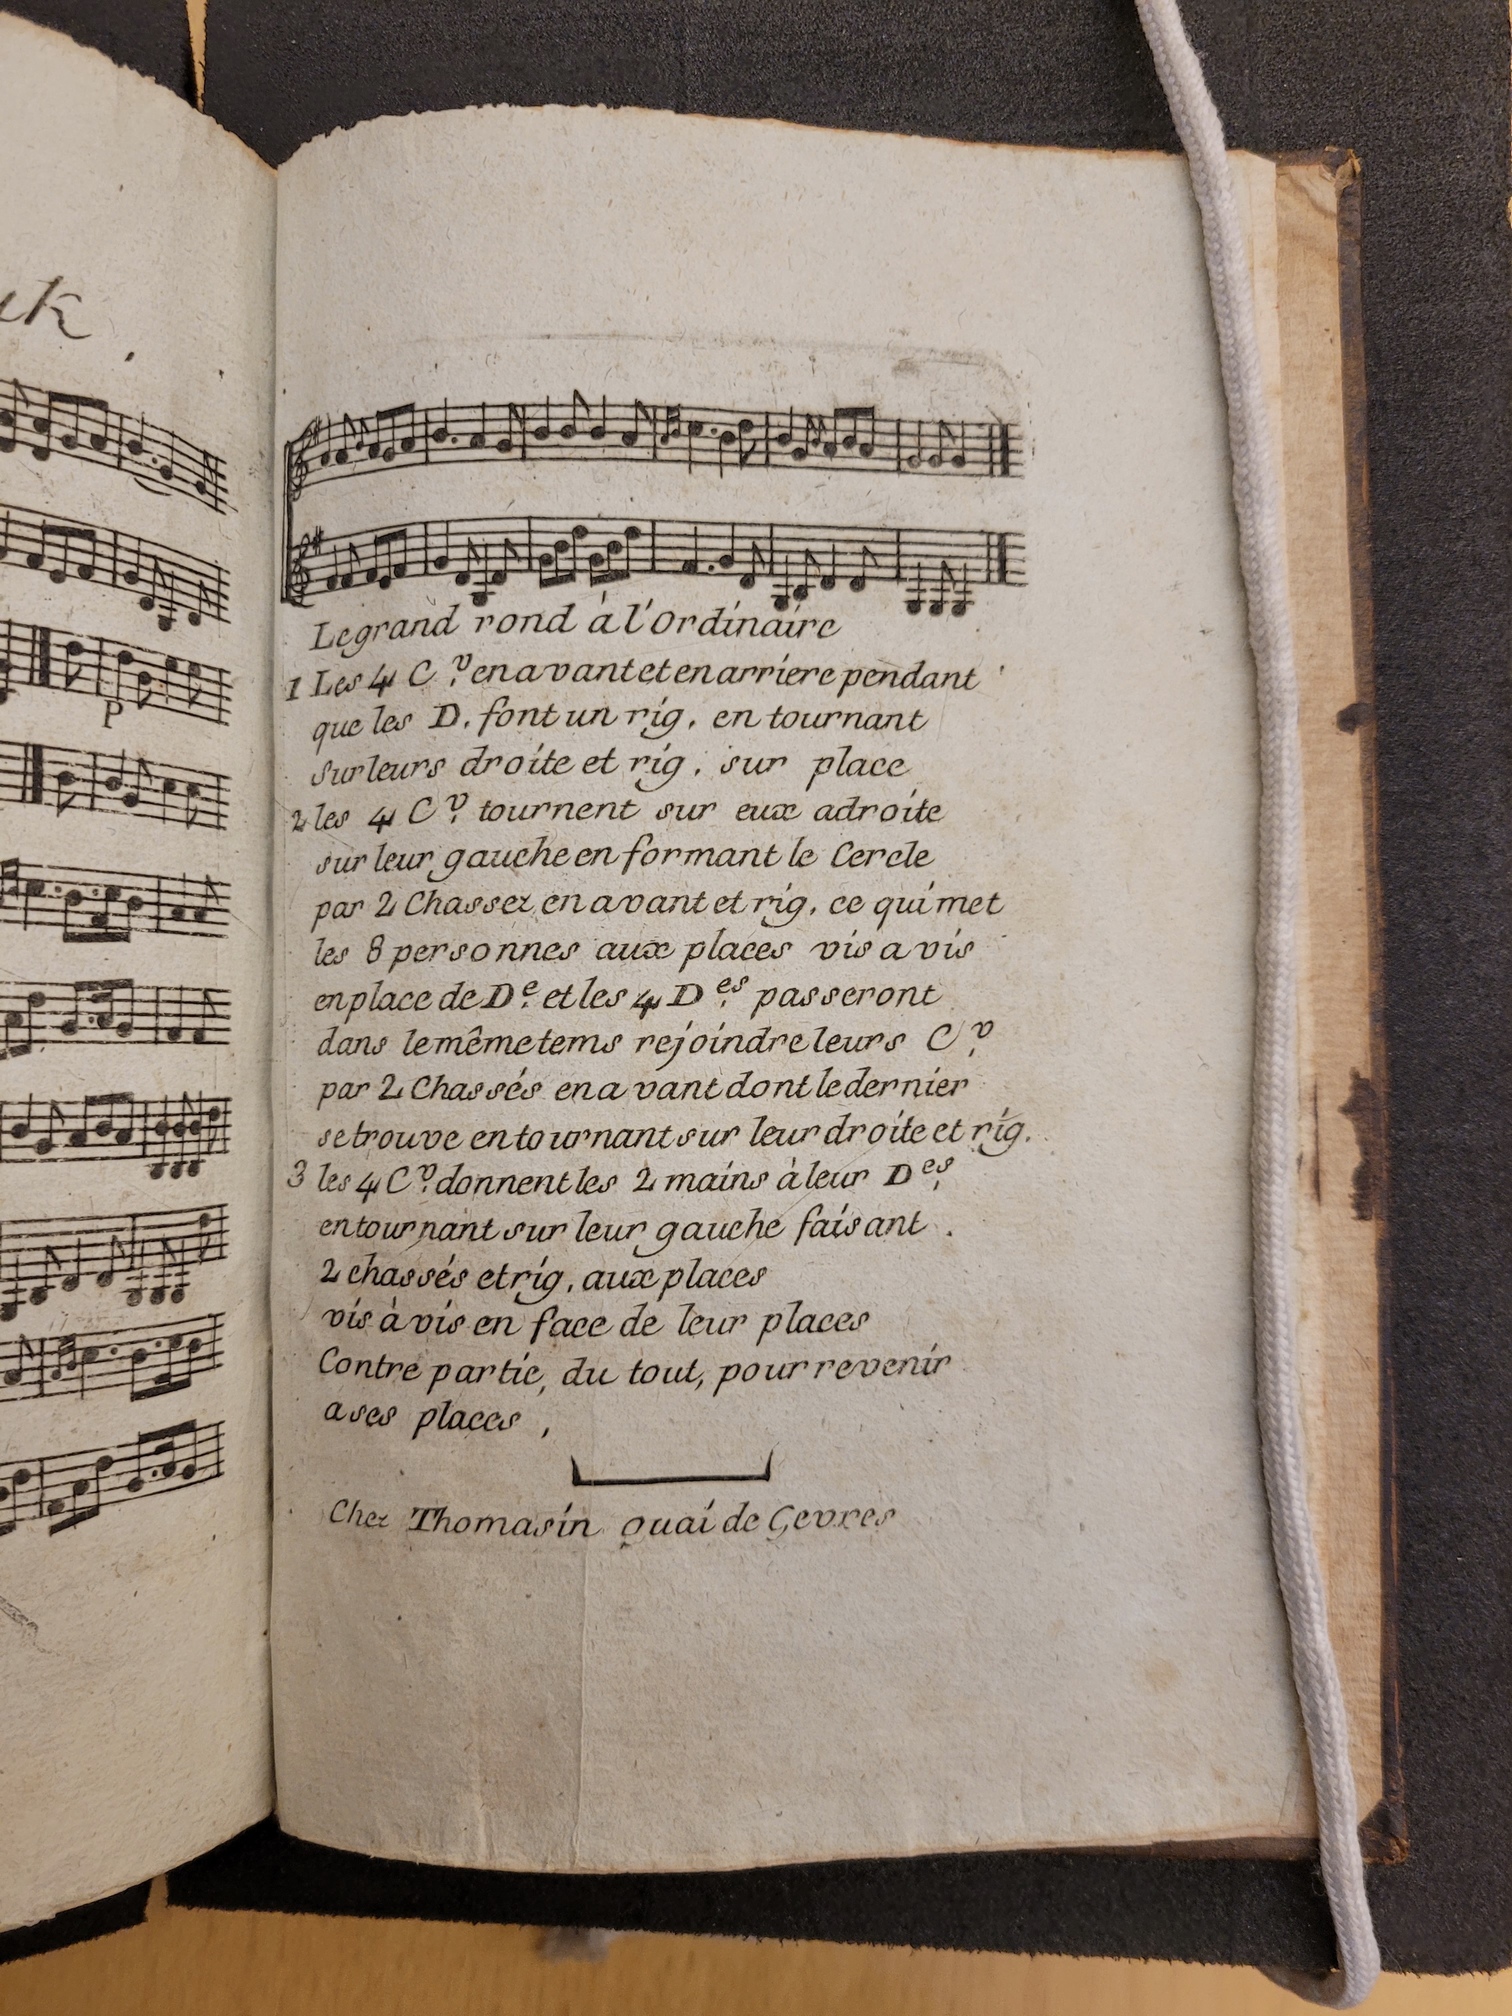 uk
P
Le grand rond à l'Ordinaire
1 Les 4 C.v en avant et en arriere pendant
que les D. font un rig. en tournant
sur leurs droite et rig. sur place
2 les 4 C.v tournent sur eux adroite
sur leur gauche en formant le Cercle
par 2 Chassez en avant et rig. ce qui met
les 8 personnes aux places vis a vis
en place de D.e et les 4 D.es passeront
dans le même tems rejoindre leurs C.v
par 2 Chassés en avant dont le dernier
se trouve en tournant sur leur droite et rig.
3 les 4 C.v donnent les 2 mains à leur D.es
en tournant sur leur gauche faisant .
2 chassés et rig. aux places
vis à vis en face de leur places
Contre partie, du tout, pour revenir
a ses places ,
Chez Thomasin Quai de Gevres